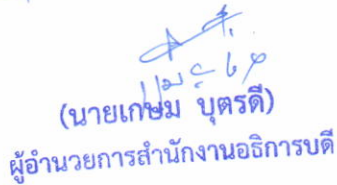 (นายเกษม บุตรดี)
ผู้อำนวยการสำนักงานอธิการบดี